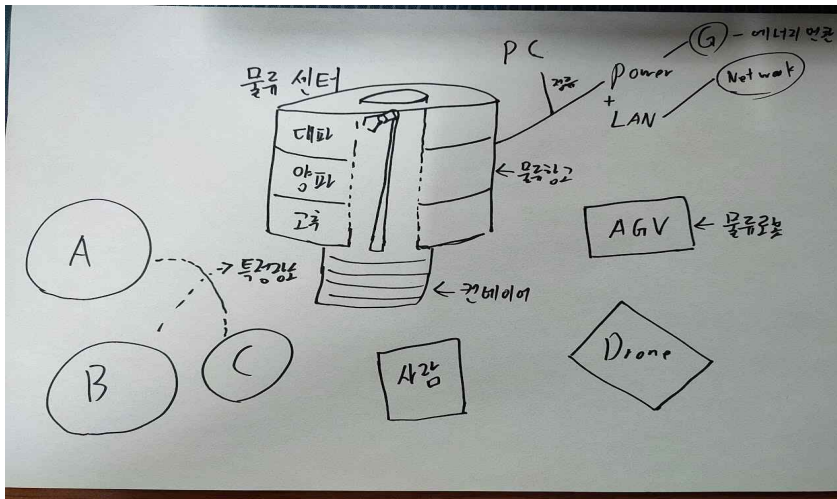 물류 센터
PC
Power
+
LAN
G - 에너지 연관
Network
대파
양파
고추
← 물류창고
AGV ← 물류로봇
A
→ 특정장소
← 컨베이어
B
C
사람
Drone